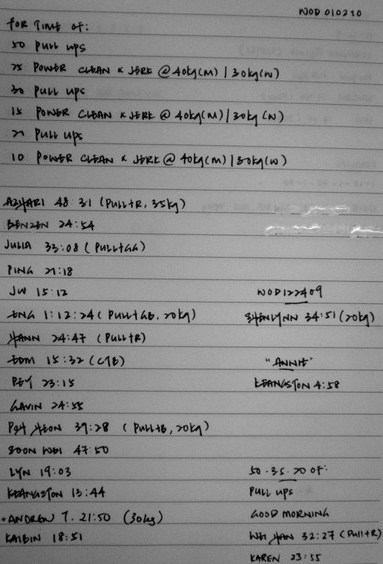 WOD 010210
FOR TIME OF:
50 PULL UPS
25 POWER CLEAN & JERK @ 40kg(M) | 30kg(W)
30 PULL UPS
15 POWER CLEAN & JERK @ 40kg(M) | 30kg(W)
20 PULL UPS
10 POWER CLEAN & JERK @ 40kg(M) | 30kg(W)
AZHARI 48:31 (PULL+R, 35kg)
BENZEN 24:54
JULIA 33:08 (PULL+GG)
PING 21:18
JW 15:12
ENG 1:12:24 (PULL+GB, 20kg)
HANN 24:47 (PULL+R)
EDM 15:32 (C2B)
PEY 23:15
GAVIN 24:55
37:28 (PULL+B, 20kg)
SOON WEI 47:50
LYN 19:03
KEANGSTON 13:44
ANDREW T. 21:50 (30kg)
KAIBIN 18:51
WOD122409
SHENLYNN 34:51 (20kg)
"ANNIE"
KEANGSTON 4:58
50-35-20 OF:
PULL UPS
GOOD MORNING
WEI HAN 32:27 (PULL+R)
KAREN 23:55